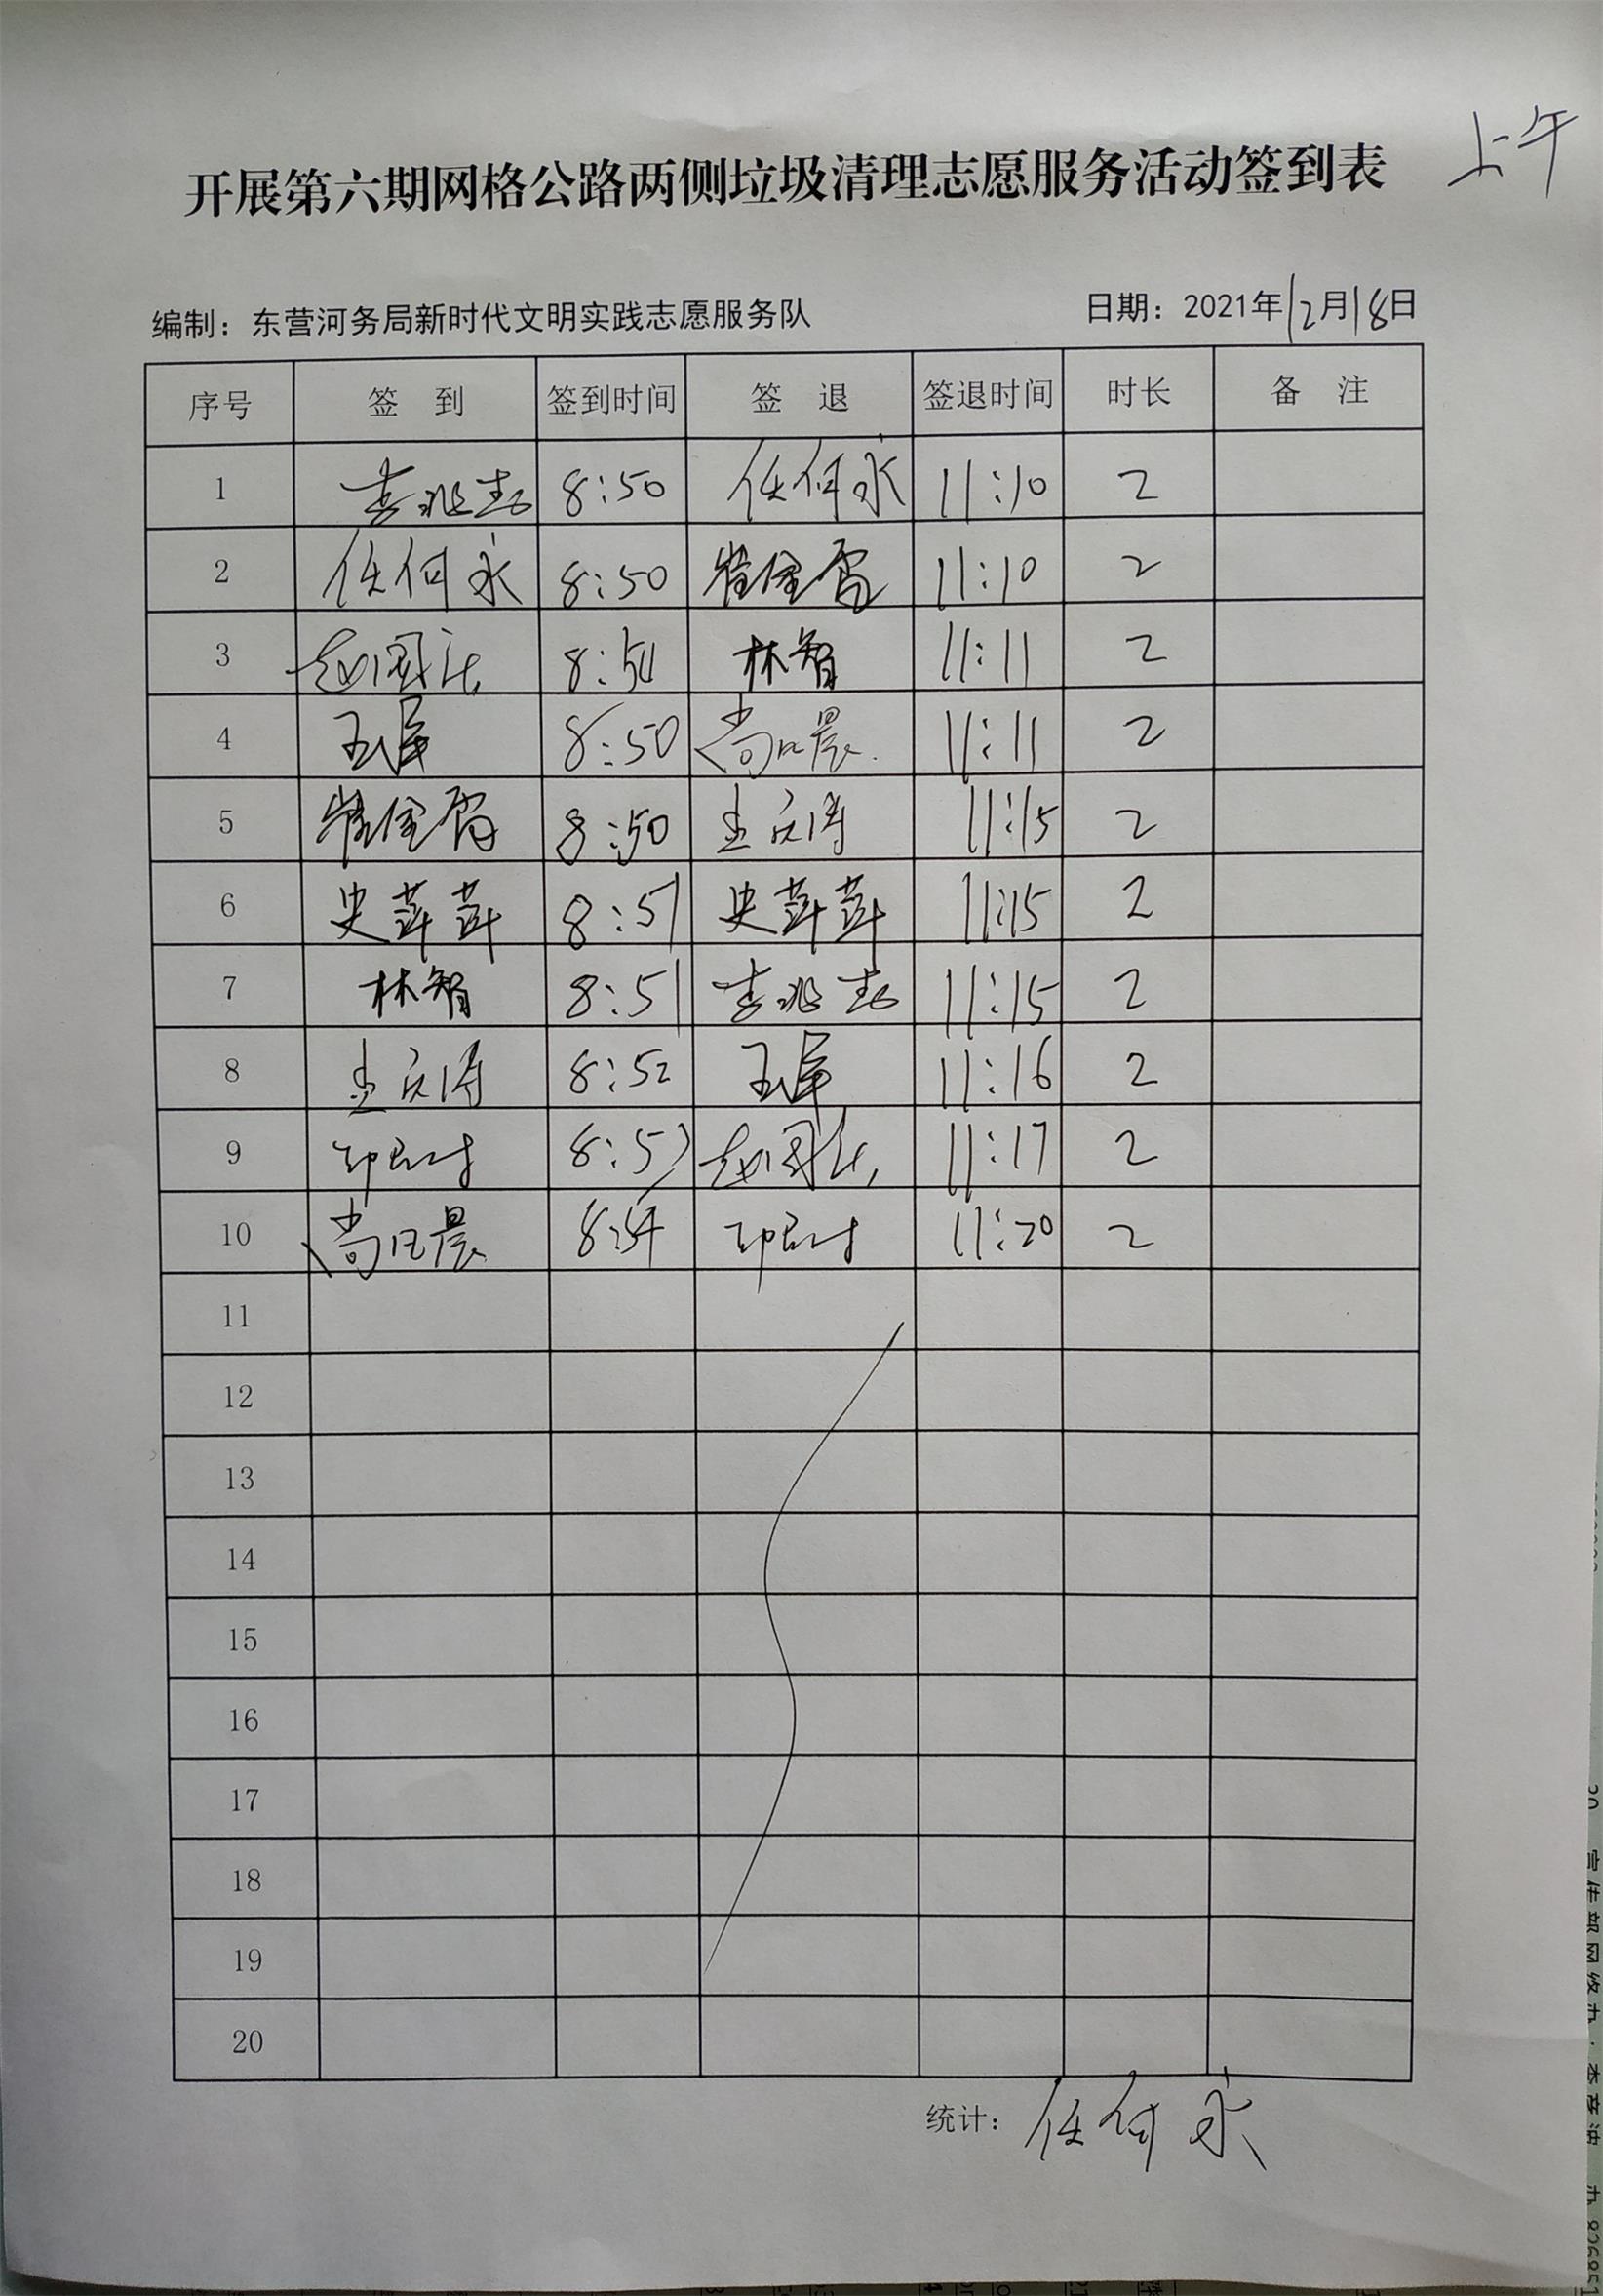 上午
开展第六期网格公路两侧垃圾清理志愿服务活动签到表
编制：东营河务局新时代文明实践志愿服务队 日期：2021年12月18日
序号 签 到 签到时间 签 退 签退时间 时长 备 注
1 李兆志 8:50 任何永 11:10 2
2 任何永 8:50 崔金霄 11:10 2
3 赵国庆 林智 11:11 2
4 王军 8:50 尚 晨 11:11 2
5 崔金霄 8:50 孟庆涛 11:15 2
6 史萍萍 8:51 史萍萍 11:15 2
7 林智 8:51 李兆志 11:15 2
8 孟庆涛 8:52 王军 11:16 2
9 赵国庆 11:17 2
10 尚 晨 8:54 11:20 2
11
12
13
14
15
16
17
18
19
20
统计：任何永